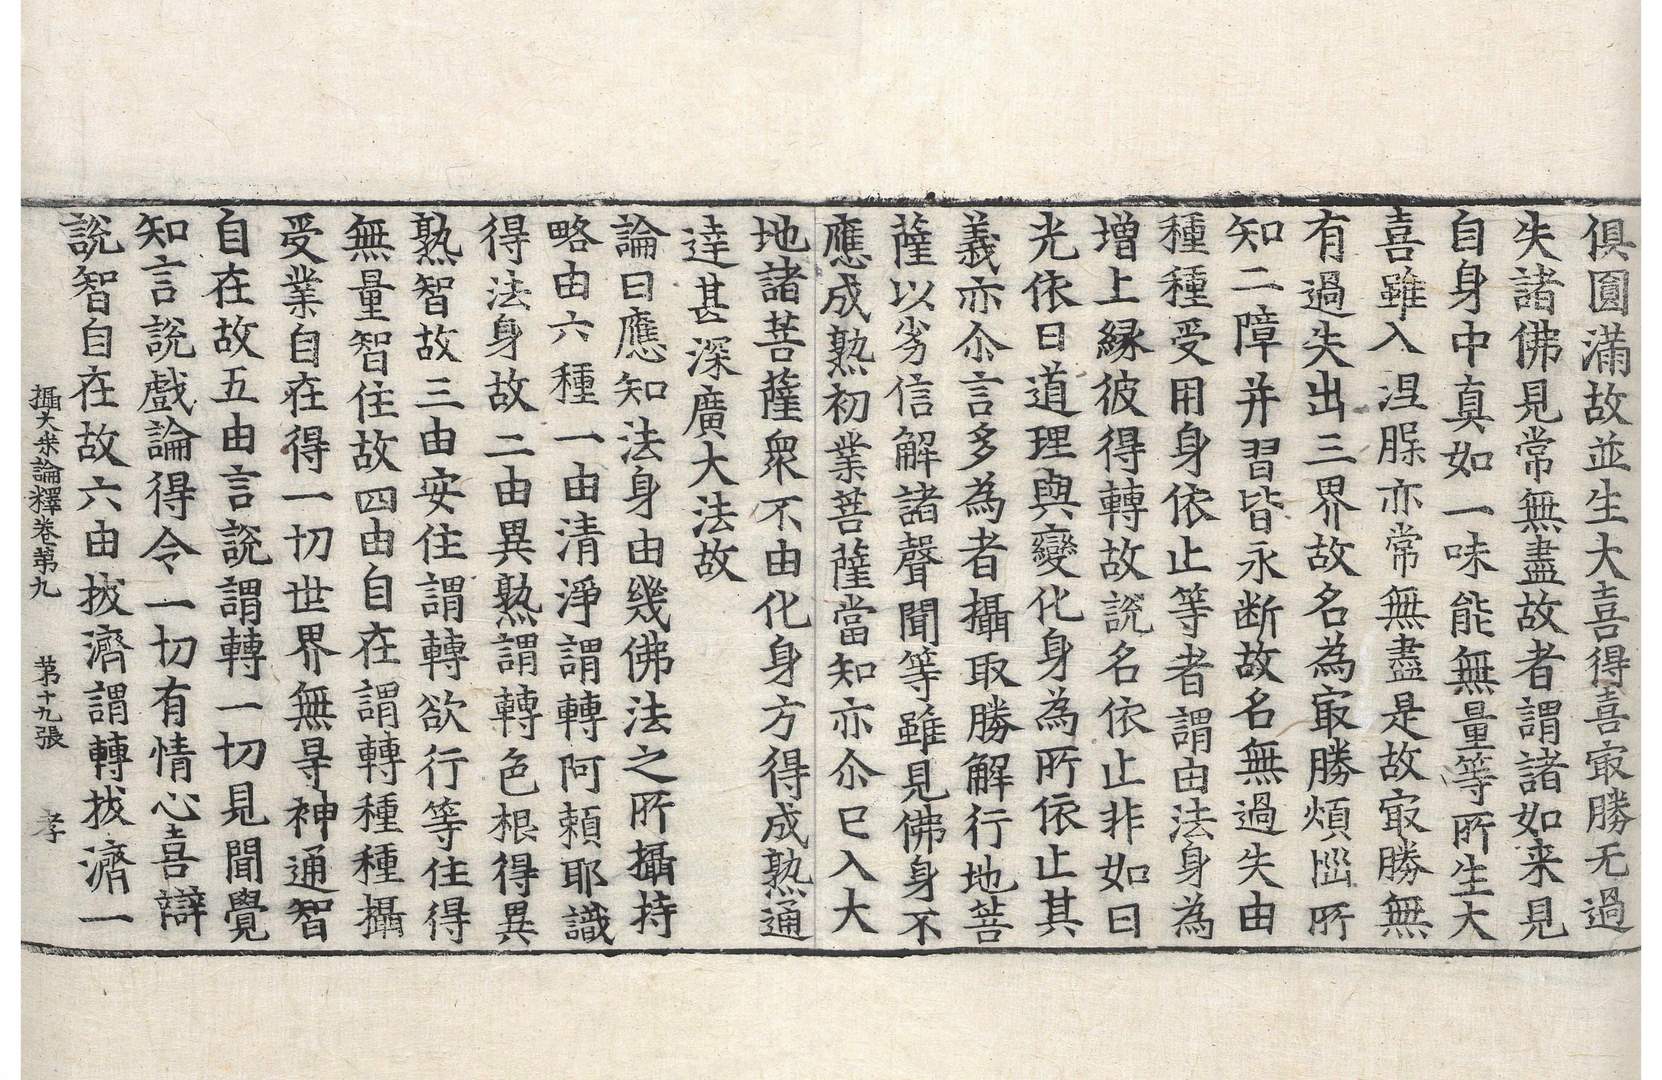 俱圓滿故並生大喜得喜㝡勝无過
失諸佛見常無盡故者謂諸如来見
自身中真如一味能無量等所生大
喜雖入涅脲亦常無盡是故㝡勝無
有過失出三界故名為㝡勝煩惱所
知二障并習皆永断故名無過失由
種種受用身依止等者謂由法身為
增上緣彼得轉故說名依止非如日
光依日道理與變化身為所依止其
義亦尒言多為者攝取勝解行地菩
薩以劣信解諸聲聞等雖見佛身不
應成熟初業菩薩當知亦尒已入大
地諸菩薩眾不由化身方得成熟通
達甚深廣大法故
論曰應知法身由幾佛法之所攝持
略由六種一由清淨謂轉阿賴耶識
得法身故二由異熟謂轉色根得異
熟智故三由安住謂轉欲行等住得
無量智住故四由自在謂轉種種攝
受業自在得一切世界無㝵神通智
自在故五由言說謂轉一切見聞覺
知言說戲論得令一切有情心喜辯
說智自在故六由拔濟謂轉拔濟一
攝大乗論釋卷第九 第十九張 孝